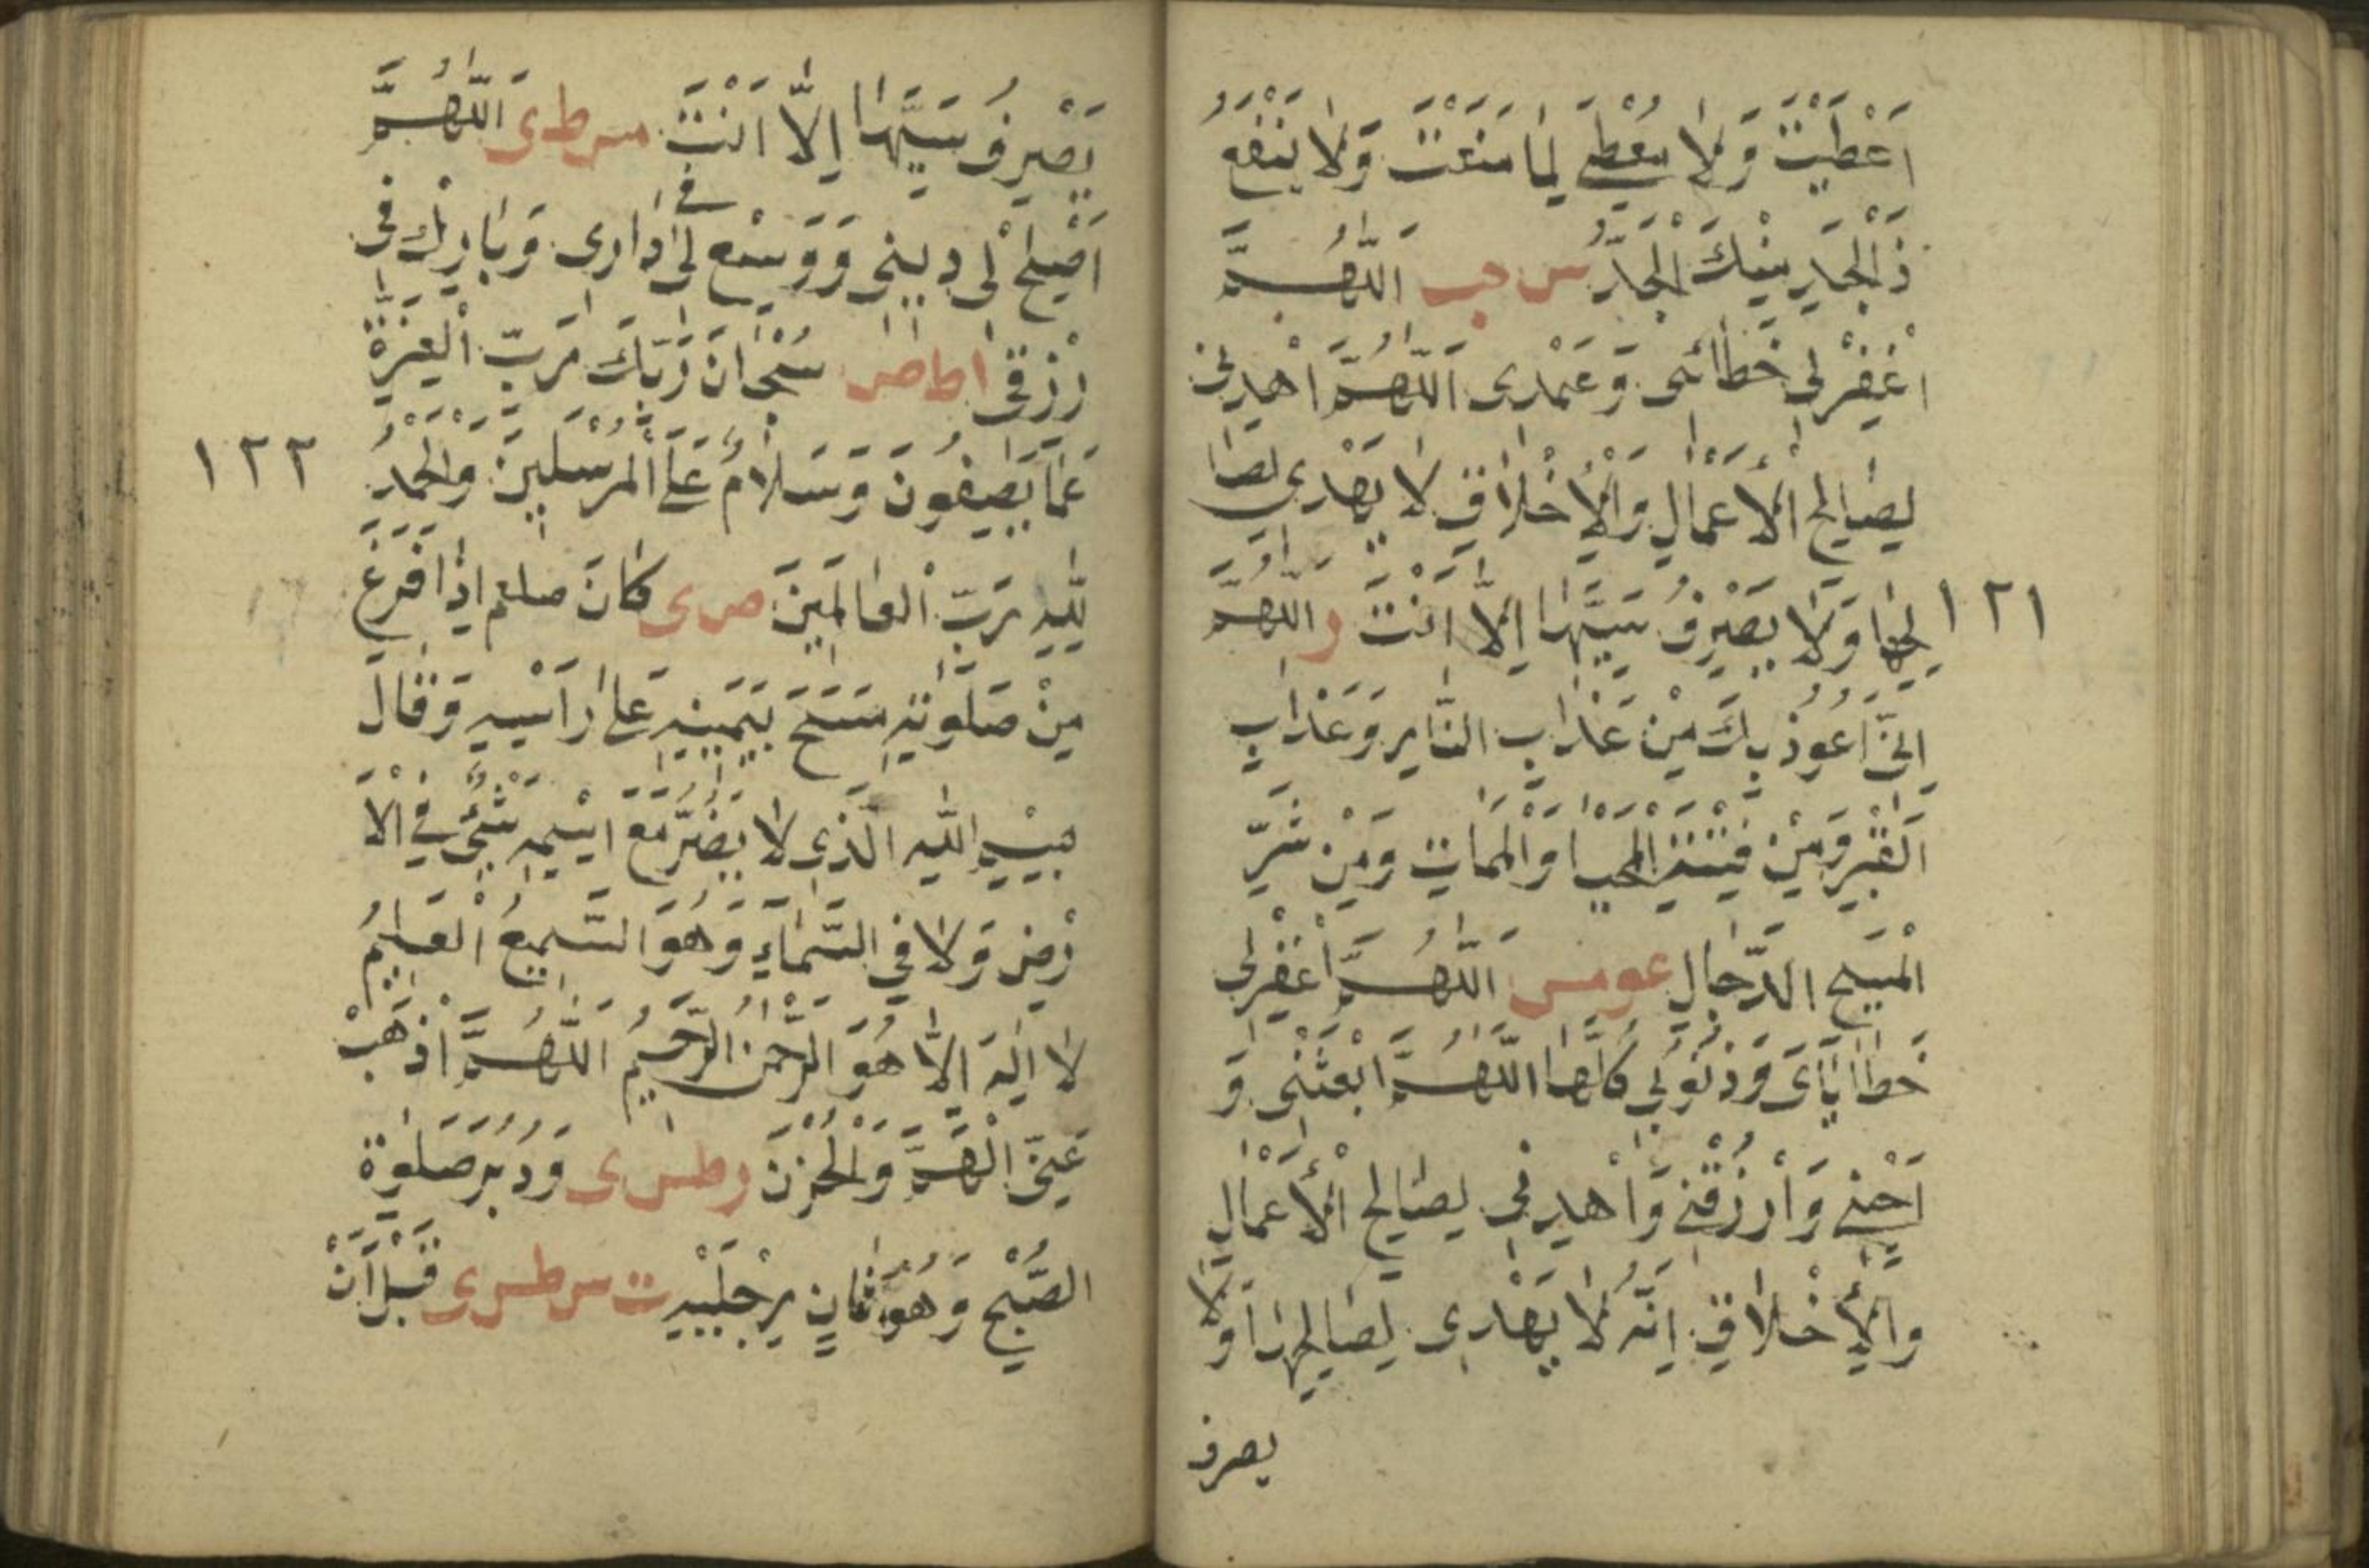 اَعْطَيْتَ وَلَا يُعْطَى لِمَا مَنَعْتَ وَلَا يَنْفَعُ
ذَ الْجَدِّ مِنْكَ الْجَدُّ س حب اَللّٰهُمَّ
اغْفِرْ لِى خَطَائِى وَعَمْدِى اَللّٰهُمَّ اهْدِنِى
لِصَالِحِ الْاَعْمَالِ وَالْاَخْلَاقِ لَا يَهْدِى لِصَا
١٢١
لِحِهَا وَلَا يَصْرِفُ سَيِّهَا اِلَّا اَنْتَ ر اَللّٰهُمَّ
اِنِّى اَعُوذُ بِكَ مِنْ عَذَابِ النَّارِ وَعَذَابِ
الْقَبْرِ وَمِنْ فِتْنَةِ الْمَحْيَا وَالْمَمَاتِ وَمِنْ شَرِّ
الْمَسِيحِ الدَّجَالِ عو مس اَللّٰهُمَّ اغْفِرْ لِى
خَطَايَاىَ وَذُنُوبِى كُلَّهَا اللّٰهُمَّ ابْعَثْنِى وَ
اَحْيِنِى وَارْزُقْنِى وَاهْدِنِى لِصَالِحِ الْاَعْمَالِ
وَالْاَخْلَاقِ اِنَّهُ لَا يَهْدِى لِصَالِحِهَا وَلَا
يصرف
يَصْرِفُ سَيِّهَا اِلَّا اَنْتَ مس ط ى اَللّٰهُمَّ
اَصْلِحْ لِى دِينِى وَوَسِّعْ لِى فى دَارِى وَبَارِكْ فِى
رِزْقِى ا ط ص سُبْحَانَ رَبِّكَ رَبِّ الْعِزَّةِ
عَمَّا يَصِفُونَ وَسَلَامٌ عَلَى الْمُرْسَلِينَ وَالْحَمْدُ
١٢٢
لِلّٰهِ رَبِّ الْعَالَمِينَ ص ى كَانَ صلعم اِذَا فَرَغَ
مِنْ صَلَوتِهِ مَسَحَ بِيَمِينِهِ عَلَى رَاْسِهِ وَقَالَ
بِسْمِ اللّٰهِ الَّذِى لَا يَضُرُّ مَعَ اسْمِهِ شَىْءٌ فِى الْاَ
رْضِ وَلَا فِى السَّمَاءِ وَهُوَ السَّمِيعُ الْعَلِيمُ
لَا اِلٰهَ اِلَّا هُوَ الرَّحْمٰنُ الرَّحِيمُ اَللّٰهُمَّ اَذْهِبْ
عَنِّى الْهَمَّ وَالْحُزْنَ ر طس ى وَدُبُرَ صَلٰوةِ
الصُّبْحِ وَهُوَ ثَانٍ رِجْلَيْهِ ت س طس ى قَبْلَ اَنْ